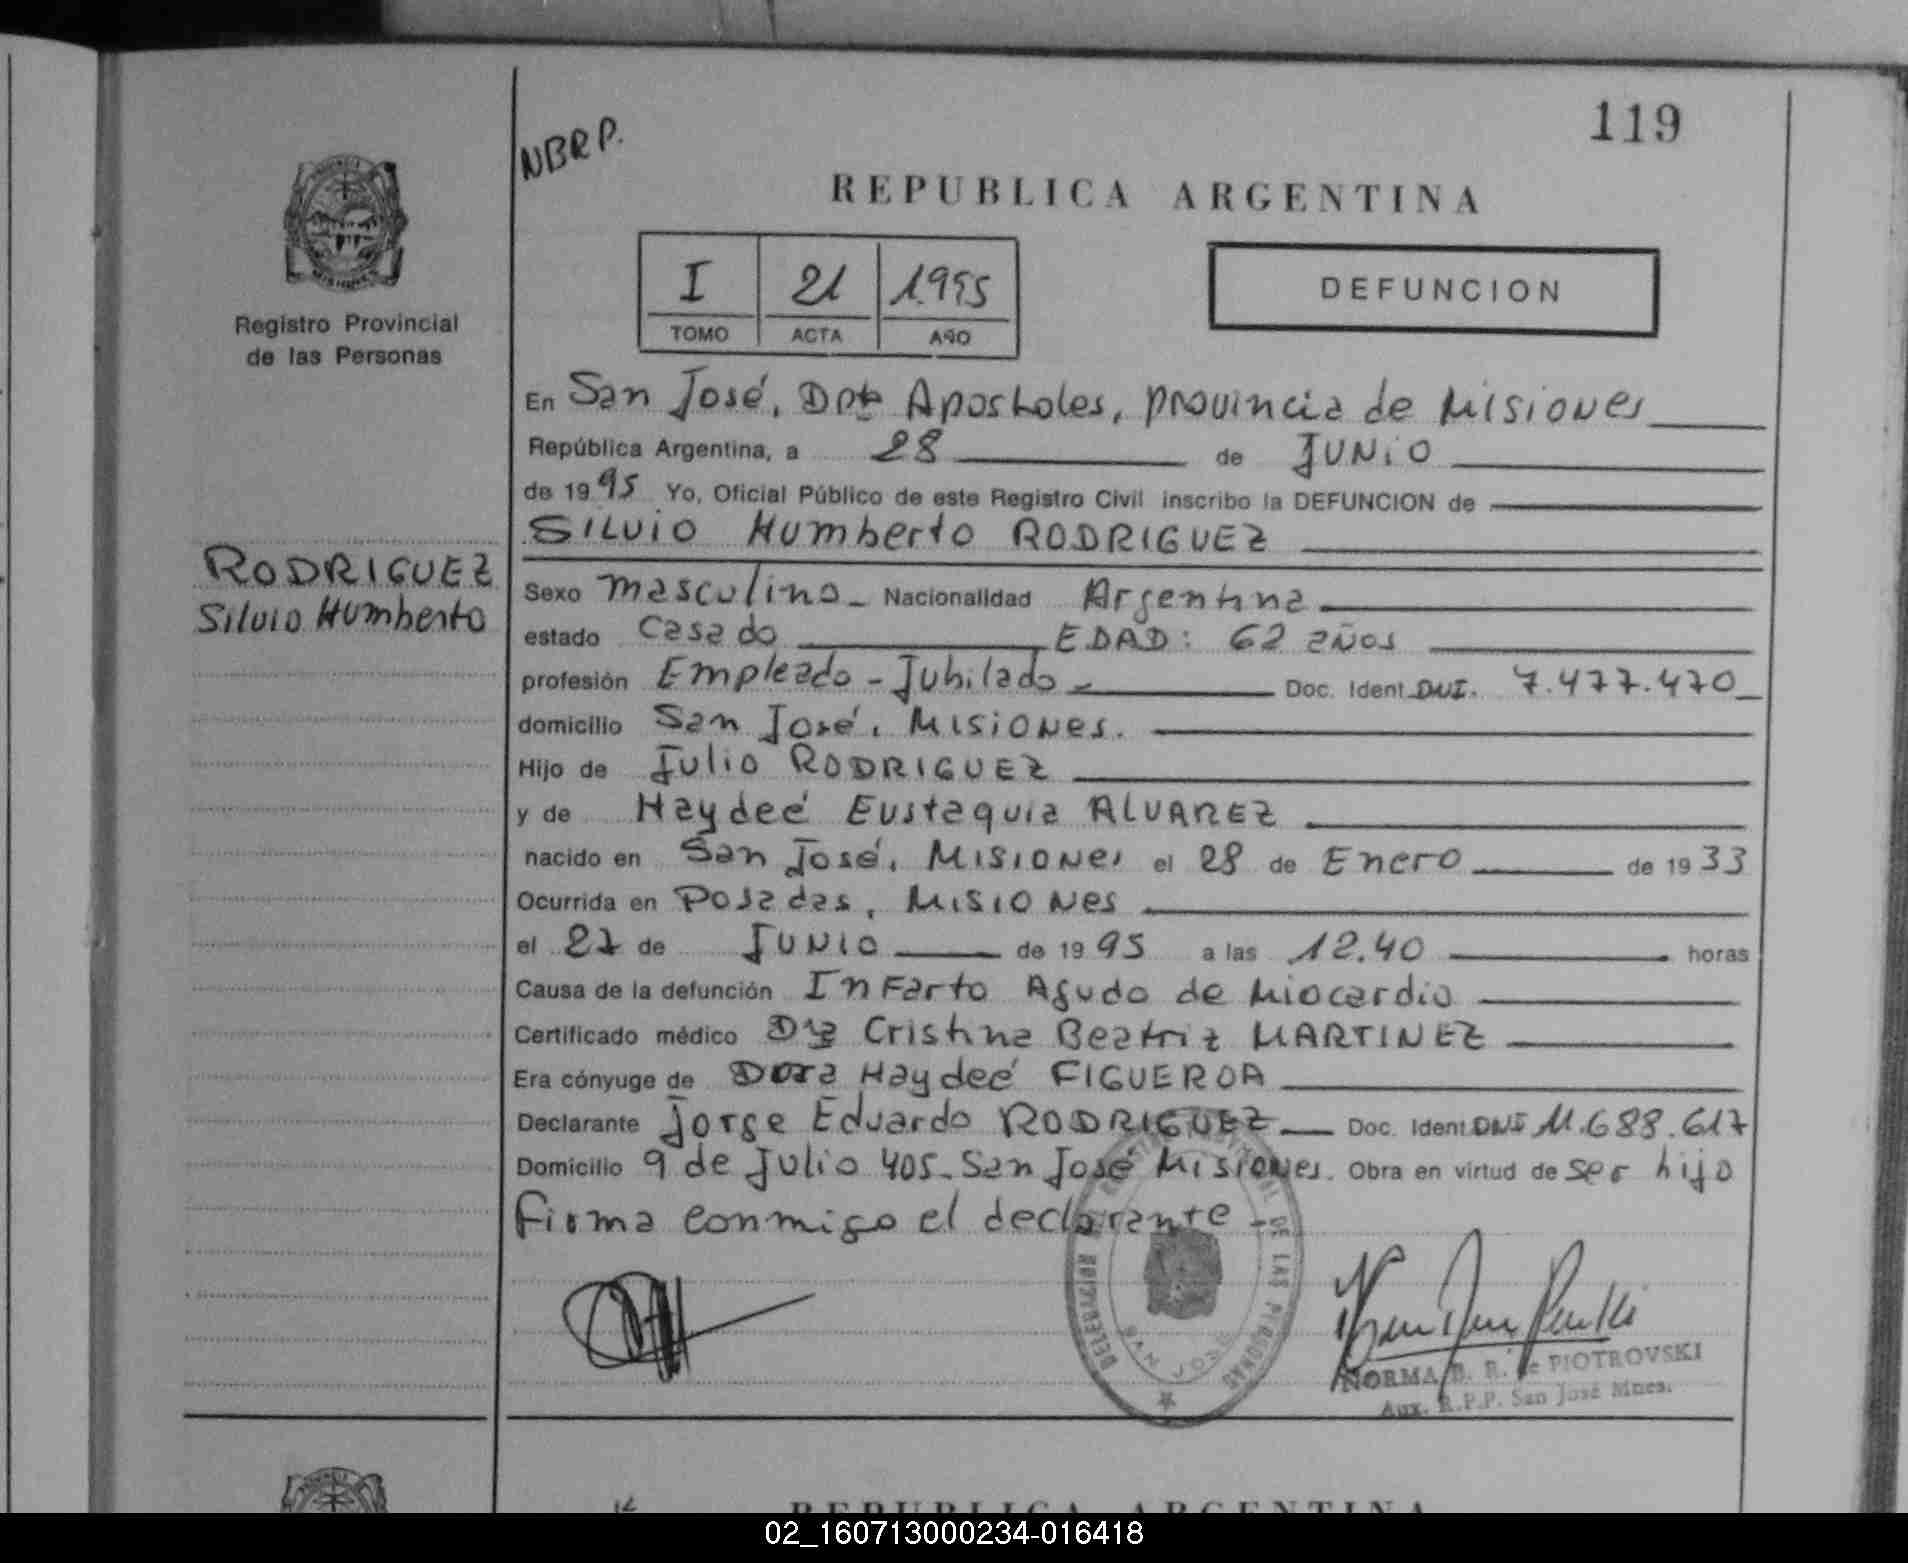 119
NBRP.
REPUBLICA ARGENTINA
I 21 1995
TOMO ACTA AÑO
DEFUNCION
Registro Provincial
de las Personas
En San José, Dpto Apostoles, provincia de Misiones
República Argentina, a 28 de JUNIO
de 1995 Yo, Oficial Público de este Registro Civil inscribo la DEFUNCION de
SILVIO Humberto RODRIGUEZ
RODRIGUEZ
Silvio Humberto
Sexo masculino - Nacionalidad Argentina
estado Casado EDAD: 62 años
profesión Empleado - Jubilado - Doc. Ident DNI. 7.477.470
domicilio San José, Misiones.
Hijo de Julio RODRIGUEZ
y de Haydeé Eustaquia ALVAREZ
nacido en San José, Misiones el 28 de Enero de 1933
Ocurrida en Posadas, Misiones
el 27 de JUNIO de 1995 a las 12.40 horas
Causa de la defunción Infarto Agudo de Miocardio
Certificado médico Dra Cristina Beatriz MARTINEZ
Era cónyuge de Dora Haydeé FIGUEROA
Declarante Jorge Eduardo RODRIGUEZ Doc. Ident DNI 11.688.617
Domicilio 9 de Julio 405 - San José Misiones. Obra en virtud de ser hijo
Firma conmigo el declarante -
DE LAS PERSONAS
SAN JOSE
NORMA B. R. de PIOTROVSKI
Aux. R.P.P. San José Mnes.
REPUBLICA ARGENTINA
02_160713000234-016418